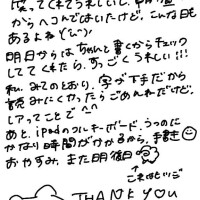 笑ってくれてうれしいし、
からへコんではいたけど、こんな日も
あるよね
明日からは、ちゃんと書くからチェック
してくれたら、すっごくうれしい!!!
私、みてのとおり、字が下手だから
読みにくくなったらごめんねだけど、
レアってことで^^
あと、iPadのフルキーボード、うつのに
かなり時間がかかるから、手書き
おやすみ、また明後日
これはヒツジ
THANK YOU